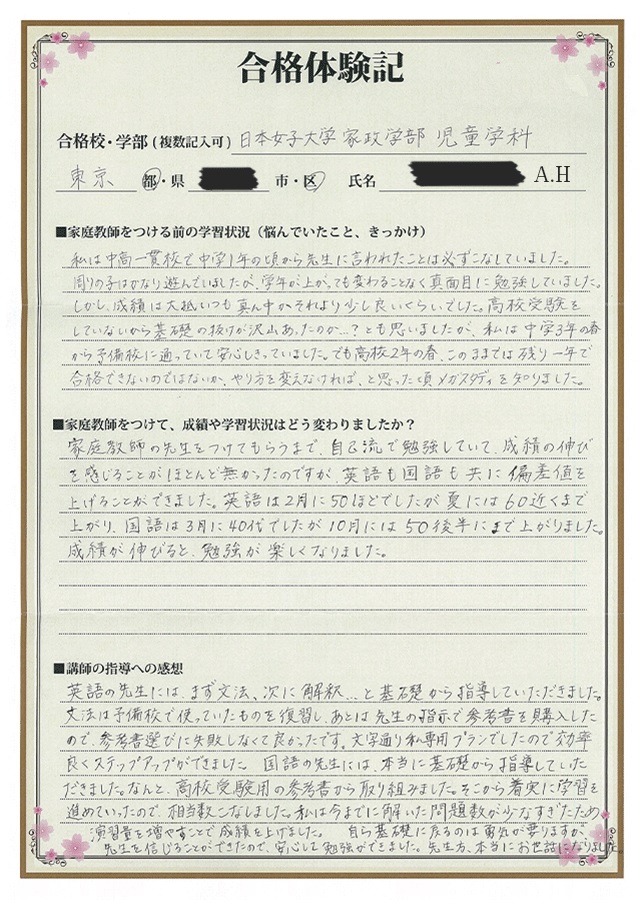 合格体験記
合格校・学部(複数記入可) 日本女子大学 家政学部 児童学科
東京 都・県 市・区 氏名 A.H
■家庭教師をつける前の学習状況（悩んでいたこと、きっかけ）
私は中高一貫校で中学1年の頃から先生に言われたことは必ずこなしていました。
周りの子はかなり遊んでいましたが、学年が上がっても変わることなく真面目に勉強していました。
しかし、成績は大抵いつも真ん中かそれより少し良いくらいでした。高校受験を
していないから基礎の抜けが沢山あったのか…？とも思いましたが、私は中学3年の春
から予備校に通っていて安心しきっていました。でも高校2年の春、このままでは残り一年で
合格できないのではないか、やり方を変えなければ、と思った頃メガスタディを知りました。
■家庭教師をつけて、成績や学習状況はどう変わりましたか？
家庭教師の先生をつけてもらうまで、自己流で勉強していて、成績の伸び
を感じることがほとんど無かったのですが、英語も国語も共に偏差値を
上げることができました。英語は2月に50ほどでしたが夏には60近くまで
上がり、国語は3月に40代でしたが10月には50後半にまで上がりました。
成績が伸びると、勉強が楽しくなりました。
■講師の指導への感想
英語の先生には、まず文法、次に解釈…と基礎から指導していただきました。
文法は予備校で使っていたものを復習し、あとは先生の指示で参考書を購入した
ので、参考書選びに失敗しなくて良かったです。文字通り私専用プランでしたので効率
良くステップアップができました 国語の先生には、本当に基礎から指導していた
だきました。なんと、高校受験用の参考書から取り組みました。そこから着実に学習を
進めていったので、相当数こなしました。私は今までに解いた問題数が少なすぎたため
演習量を増やすことで成績を上げました。 自ら基礎に戻るのは勇気が要りますが、
先生を信じることができたので、安心して勉強ができました。先生方、本当にお世話になりました。